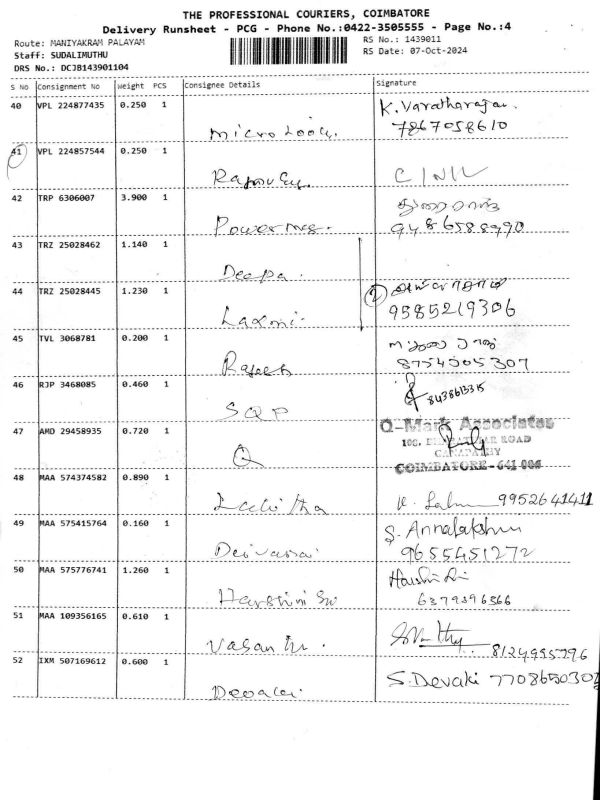 THE PROFESSIONAL COURIERS, COIMBATORE
Delivery Runsheet - PCG - Phone No.:0422-3505555 - Page No.:4
Route: MANIYAKRAM PALAYAM
RS No.: 1439011
Staff: SUDALIMUTHU
RS Date: 07-Oct-2024
DRS No.: DCJB143901104
S No Consignment No Weight PCS Consignee Details Signature
40 VPL 224877435 0.250 1 K. Varatharajan
7867058610
41 VPL 224857544 0.250 1
42 TRP 6306007 3.900 1
9486588990
43 TRZ 25028462 1.140 1
Deepa.
44 TRZ 25028445 1.230 1
Laxmi. 9585219306
45 TVL 3068781 0.200 1
Rajesh 8754005307
46 RJP 3468085 0.460 1
SQP 8438613315
47 AMD 29458935 0.720 1 Q-Mark Associates
ROAD
GANAPATHY
Q COIMBATORE-641 006
48 MAA 574374582 0.890 1
Lalitha 9952641411
49 MAA 575415764 0.160 1 S. Annalakshmi
Deivanai 9655451272
50 MAA 575776741 1.260 1
Harshini Sri 6379396566
51 MAA 109356165 0.610 1
8124995796
52 IXM 507169612 0.600 1 S. Devaki